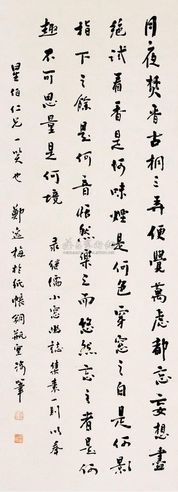 月夜焚香古桐三弄便覺萬慮都忘妄想盡
絕試看香是何味煙是何色穿窗之白是何影
指下之餘是何音恬然樂之而悠然忘之者是何
趣不可思量是何境
录继儒小窗幽誌集素一則以奉
星伯仁兄一笑也 鄭逸梅於紙帳銅瓶室涉筆